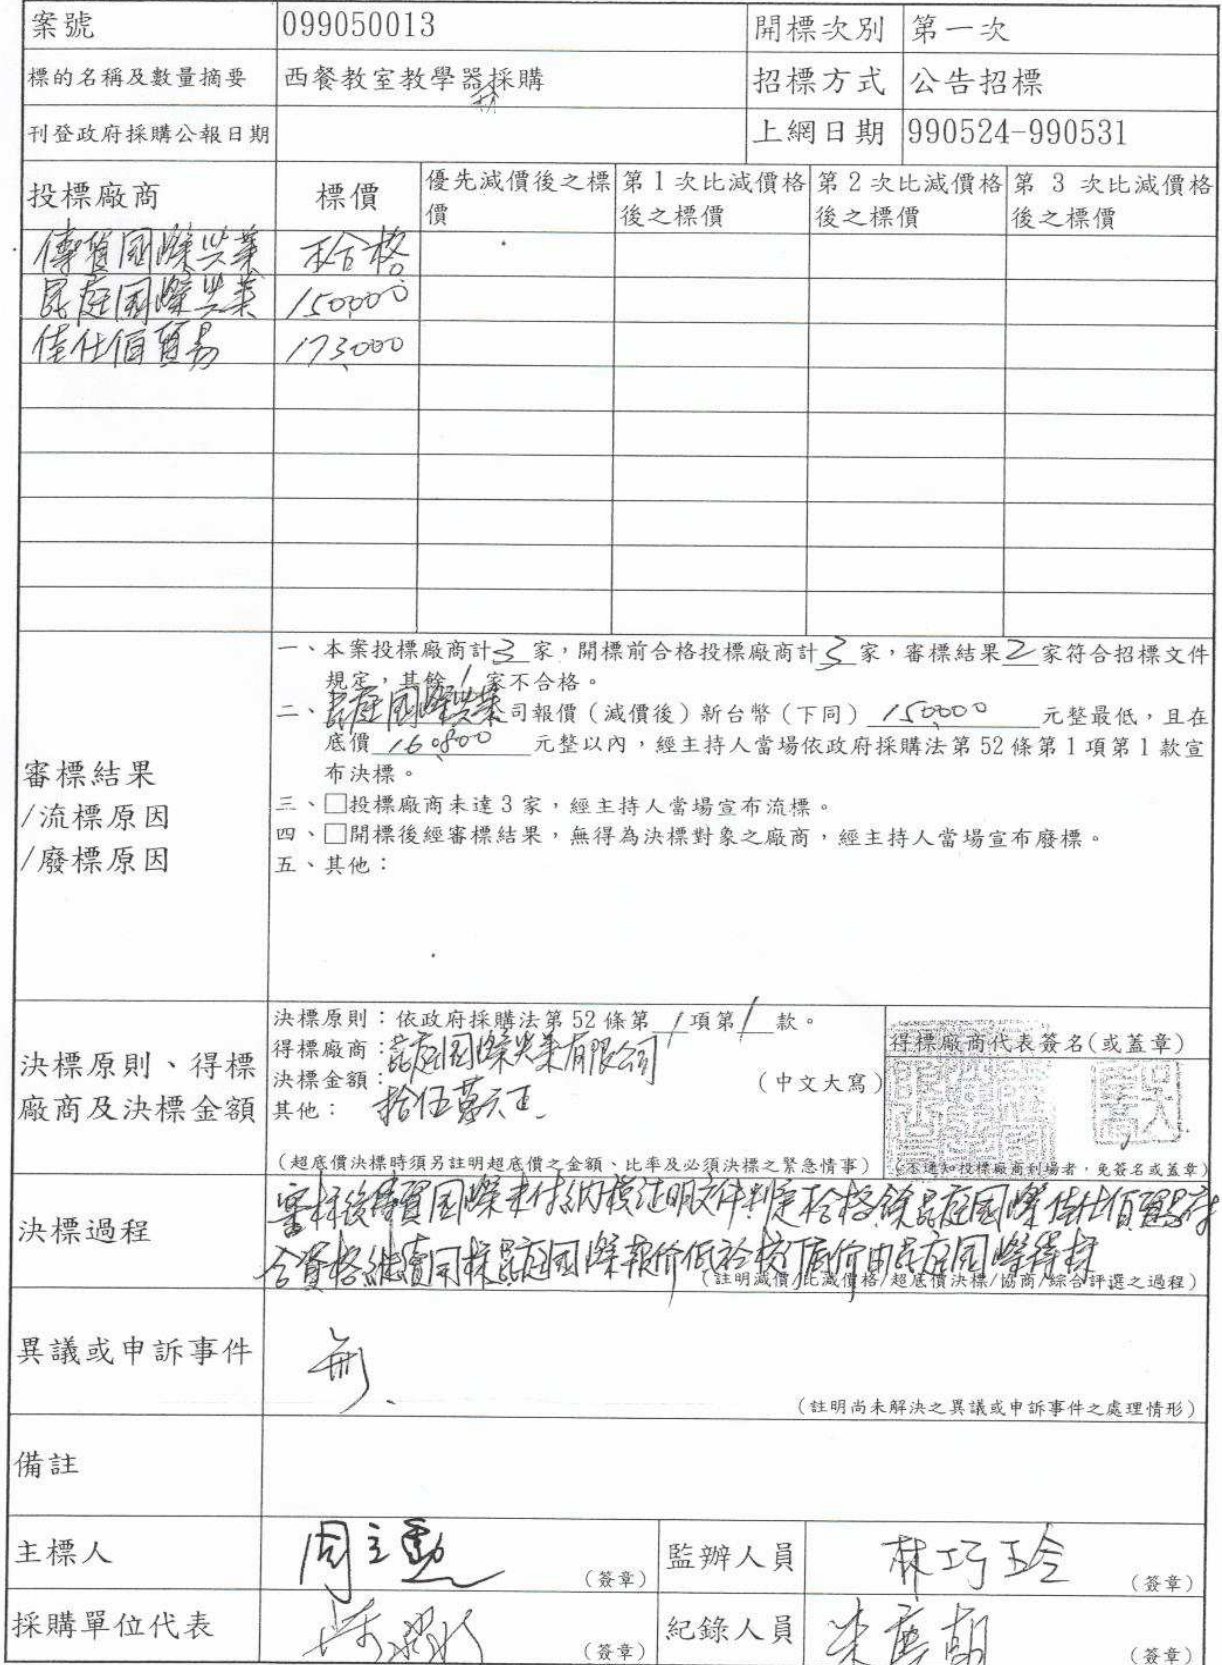 案號 099050013 開標次別 第一次
標的名稱及數量摘要 西餐教室教學器材採購 招標方式 公告招標
刊登政府採購公報日期 上網日期 990524-990531
投標廠商 標價 優先減價後之標價 第1次比減價格後之標價 第2次比減價格後之標價 第3次比減價格後之標價
國際興業 不合格
昆庭國際興業 150000
佳仕佰貿易 173000
審標結果
/流標原因
/廢標原因
一、本案投標廠商計3家，開標前合格投標廠商計3家，審標結果2家符合招標文件
規定，其餘1家不合格。
二、昆庭國際興業司報價（減價後）新台幣（下同）150000元整最低，且在
底價160800元整以內，經主持人當場依政府採購法第52條第1項第1款宣
布決標。
三、□投標廠商未達3家，經主持人當場宣布流標。
四、□開標後經審標結果，無得為決標對象之廠商，經主持人當場宣布廢標。
五、其他：
決標原則、得標
廠商及決標金額
決標原則：依政府採購法第52條第1項第1款。
得標廠商：昆庭國際興業有限公司
決標金額： （中文大寫）
其他： 拾伍萬元正
（超底價決標時須另註明超底價之金額、比率及必須決標之緊急情事）
得標廠商代表簽名(或蓋章)
（不通知投標廠商到場者，免簽名或蓋章）
決標過程
審標後 國際未付納稅証明文件判定不合格餘昆庭國際佳仕佰貿易符
合資格繼續開標昆庭國際報价低於核訂底价由昆庭國際得標
（註明減價/比減價格/超底價決標/協商/綜合評選之過程）
異議或申訴事件 無
（註明尚未解決之異議或申訴事件之處理情形）
備註
主標人 周立勳 （簽章） 監辦人員 林巧玲 （簽章）
採購單位代表 （簽章） 紀錄人員 （簽章）